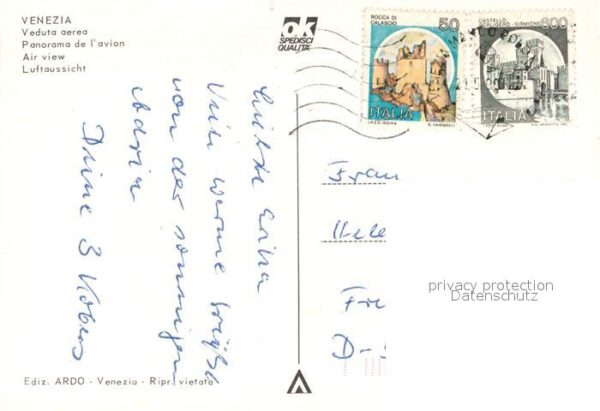 VENEZIA
Veduta aerea
Panorama de l'avion
Air view
Luftaussicht
OK
SPEDISCI
QUALITÀ
ROCCA DI
CALASCIO
50
ITALIA
CASTELLO
SCALIGERO - SIRMIONE
800
ITALIA
MARCO POLO
Liebste Erika
Viele warme Grüße
von der sonnigen
Adria
Deine 3 Kobers
Frau
Hele
Fr
D-
privacy protection
Datenschutz
Ediz. ARDO - Venezia - Ripr. vietata